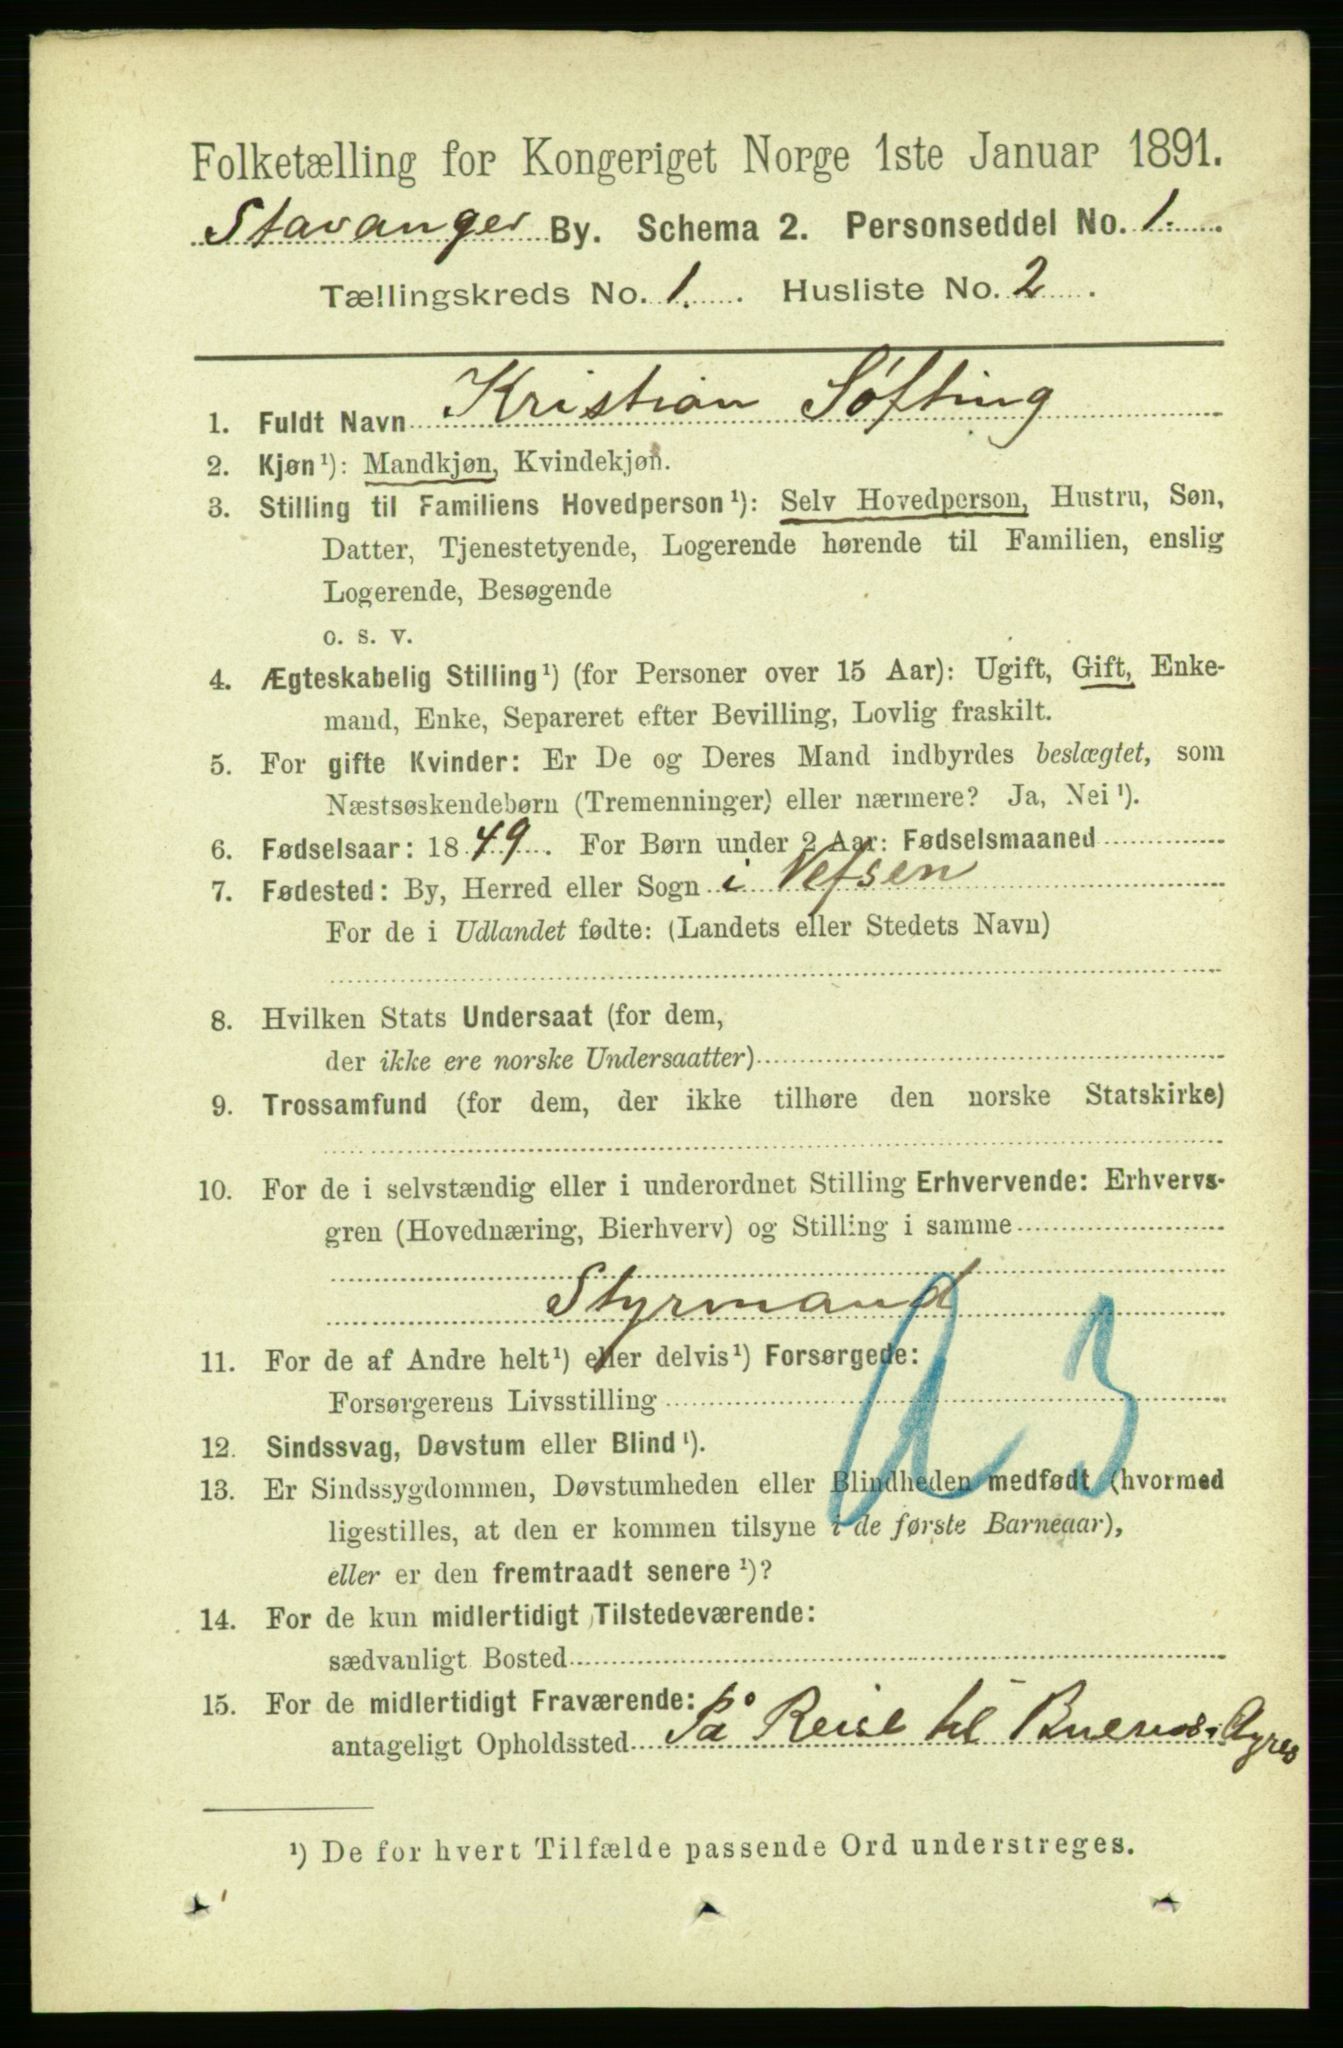 Folketælling for Kongeriget Norge 1ste Januar 1891.
Stavanger By. Schema 2. Personseddel No. 1.
Tællingskreds No. 1. Husliste No. 2
1. Fuldt Navn Kristian Søfting
2. Kjøn¹): Mandkjøn, Kvindekjøn.
3. Stilling til Familiens Hovedperson¹): Selv Hovedperson, Hustru, Søn,
Datter, Tjenestetyende, Logerende hørende til Familien, enslig
Logerende, Besøgende
o. s. v.
4. Ægteskabelig Stilling¹) (for Personer over 15 Aar): Ugift, Gift, Enke-
mand, Enke, Separeret efter Bevilling, Lovlig fraskilt.
5. For gifte Kvinder: Er De og Deres Mand indbyrdes beslægtet, som
Næstsøskendebørn (Tremenninger) eller nærmere? Ja, Nei¹).
6. Fødselsaar: 1849. For Børn under 2 Aar: Fødselsmaaned
7. Fødested: By, Herred eller Sogn i Vefsen
For de i Udlandet fødte: (Landets eller Stedets Navn)
8. Hvilken Stats Undersaat (for dem,
der ikke ere norske Undersaatter)
9. Trossamfund (for dem, der ikke tilhøre den norske Statskirke)
10. For de i selvstændig eller i underordnet Stilling Erhvervende: Erhvervs-
gren (Hovednæring, Bierhverv) og Stilling i samme
Styrmand
11. For de af Andre helt¹) eller delvis¹) Forsørgede:
Forsørgerens Livsstilling
12. Sindssvag, Døvstum eller Blind¹).
13. Er Sindssygdommen, Døvstumheden eller Blindheden medfødt (hvormed
ligestilles, at den er kommen tilsyne i de første Barneaar),
eller er den fremtraadt senere¹)?
14. For de kun midlertidigt Tilstedeværende:
sædvanligt Bosted
15. For de midlertidigt Fraværende:
antageligt Opholdssted På Reise til Buenos-Ayres
¹) De for hvert Tilfælde passende Ord understreges.